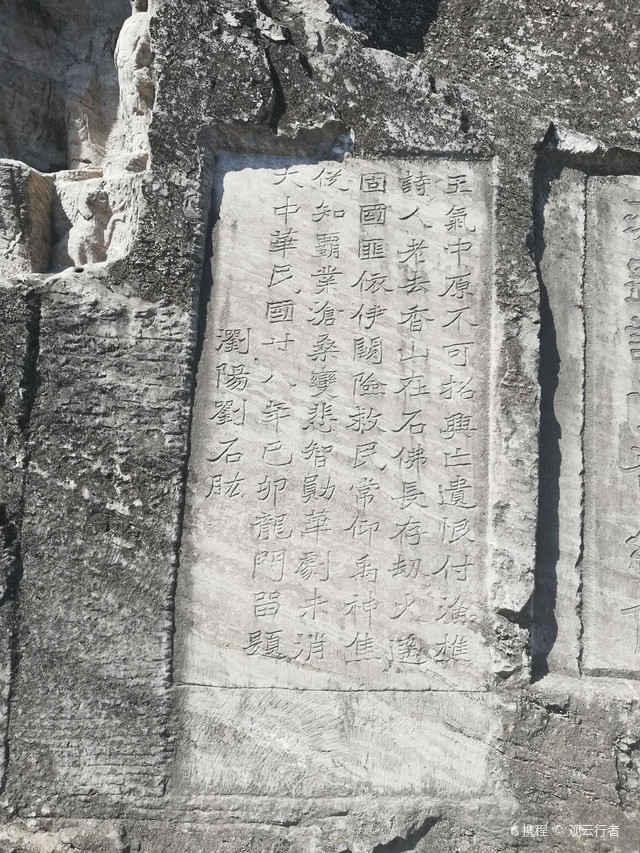 王氣中原不可招興亡遺恨付漁樵
詩人老去香山在石佛長存劫火遙
固國匪依伊闕險救民常仰禹神焦
從知霸業滄桑變悲智勛華劇未消
大中華民國廿八年己卯龍門留題
瀏陽劉石肱
携程 © 观云行者